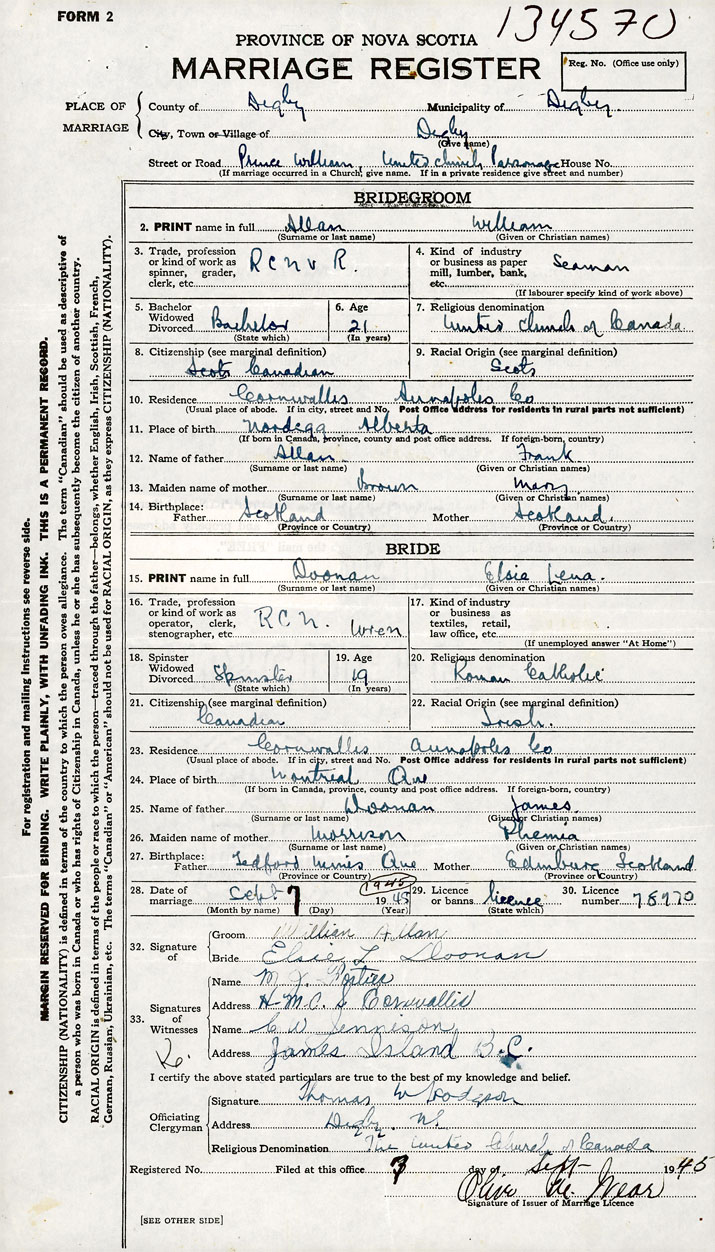 FORM 2
134570
PROVINCE OF NOVA SCOTIA
MARRIAGE REGISTER
Reg. No. (Office use only)
PLACE OF MARRIAGE
County of Digby Municipality of Digby.
City, Town or Village of Digby
(Give name)
Street or Road Prince William, United Church Parsonage House No.
(If marriage occurred in a Church, give name. If in a private residence give street and number)
BRIDEGROOM
2. PRINT name in full Allan William
(Surname or last name) (Given or Christian names)
3. Trade, profession or kind of work as spinner, grader, clerk, etc. R C N V R.
4. Kind of industry or business as paper mill, lumber, bank, etc. Seaman
(If labourer specify kind of work above)
5. Bachelor Widowed Divorced Bachelor
(State which)
6. Age 21
(In years)
7. Religious denomination
United Church of Canada
8. Citizenship (see marginal definition)
Scots Canadian
9. Racial Origin (see marginal definition)
Scots
10. Residence Cornwallis Annapoles Co
(Usual place of abode. If in city, street and No. Post Office address for residents in rural parts not sufficient)
11. Place of birth Nordegg Alberta
(If born in Canada, province, county and post office address. If foreign-born, country)
12. Name of father Allan Frank
(Surname or last name) (Given or Christian names)
13. Maiden name of mother Brown Mary
(Surname or last name) (Given or Christian names)
14. Birthplace: Father Scotland Mother Scotland.
(Province or Country) (Province or Country)
BRIDE
15. PRINT name in full Doonan Elsie Lena.
(Surname or last name) (Given or Christian names)
16. Trade, profession or kind of work as operator, clerk, stenographer, etc. R C N. Wren
17. Kind of industry or business as textiles, retail, law office, etc.
(If unemployed answer "At Home")
18. Spinster Widowed Divorced Spinster
(State which)
19. Age 19
(In years)
20. Religious denomination
Roman Catholic
21. Citizenship (see marginal definition)
Canadian
22. Racial Origin (see marginal definition)
Irish.
23. Residence Cornwallis Annapoles Co
(Usual place of abode. If in city, street and No. Post Office address for residents in rural parts not sufficient)
24. Place of birth Montreal Que
(If born in Canada, province, county and post office address. If foreign-born, country)
25. Name of father Doonan James
(Surname or last name) (Given or Christian names)
26. Maiden name of mother Morrison Phemia
(Surname or last name) (Given or Christian names)
27. Birthplace: Father Tedford Mines Que Mother Edinburg Scotland
(Province or Country) (Province or Country)
28. Date of marriage Sept 7 1945 (1945)
(Month by name) (Day) (Year)
29. Licence or banns. licence
(State which)
30. Licence number 78970
32. Signature of
Groom William Allan
Bride Elsie L Doonan
33. Signatures of Witnesses
Name M. J. Portier
Address H.M.C.S Cornwallis
Name C W Jennison
Address James Island B.C.
I certify the above stated particulars are true to the best of my knowledge and belief.
Officiating Clergyman
Signature Thomas W Hodgson
Address Digby. N.S.
Religious Denomination The United Church of Canada
Registered No. Filed at this office 7 day of Sept 1945
Signature of Issuer of Marriage Licence
[SEE OTHER SIDE]
For registration and mailing instructions see reverse side.
MARGIN RESERVED FOR BINDING. WRITE PLAINLY, WITH UNFADING INK. THIS IS A PERMANENT RECORD.
CITIZENSHIP (NATIONALITY) is defined in terms of the country to which the person owes allegiance. The term "Canadian" should be used as descriptive of
a person who was born in Canada or who has rights of Citizenship in Canada, unless he or she has subsequently become the citizen of another country.
RACIAL ORIGIN is defined in terms of the people or race to which the person—traced through the father—belongs, whether English, Irish, Scottish, French,
German, Russian, Ukrainian, etc. The terms "Canadian" or "American" should not be used for RACIAL ORIGIN, as they express CITIZENSHIP (NATIONALITY).